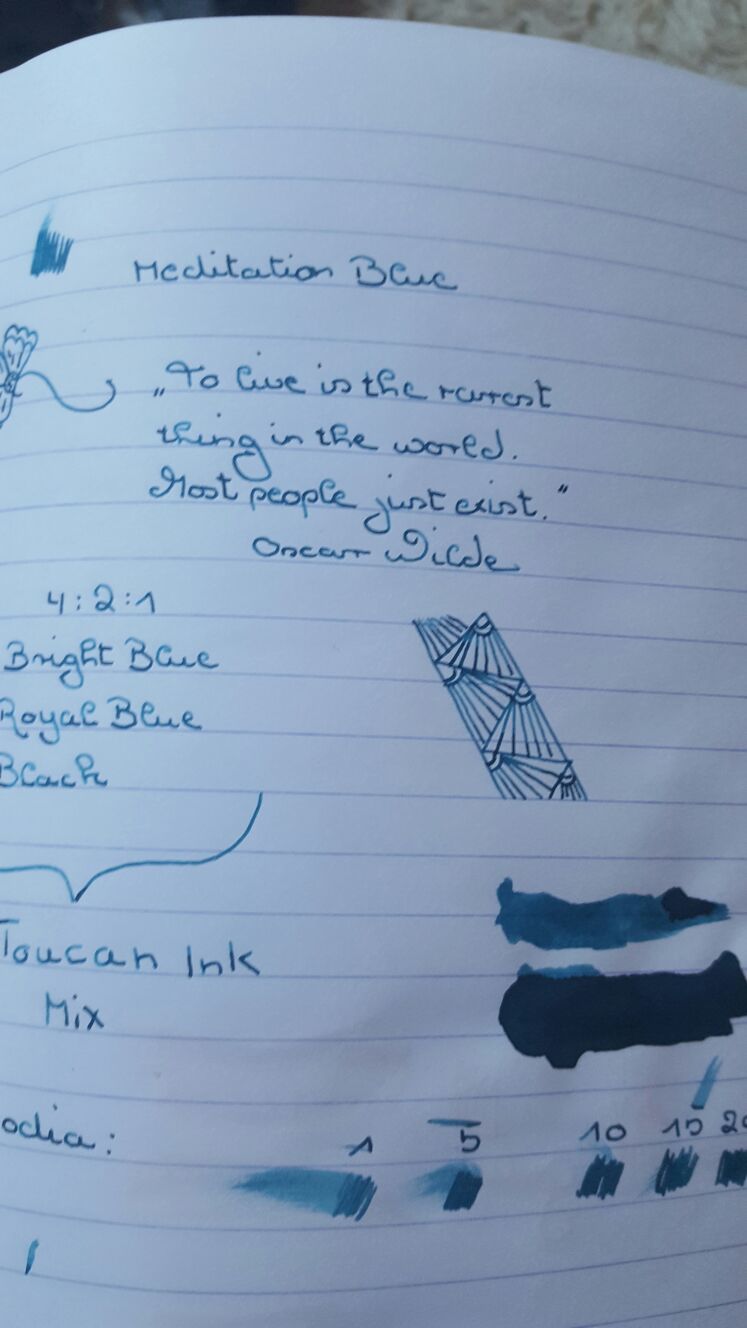 Meditation Blue
„To live is the rarest
thing in the world.
Most people just exist."
Oscar Wilde
4:2:1
Bright Blue
Royal Blue
Black
Toucan Ink
Mix
odia:
1 5 10 15 20